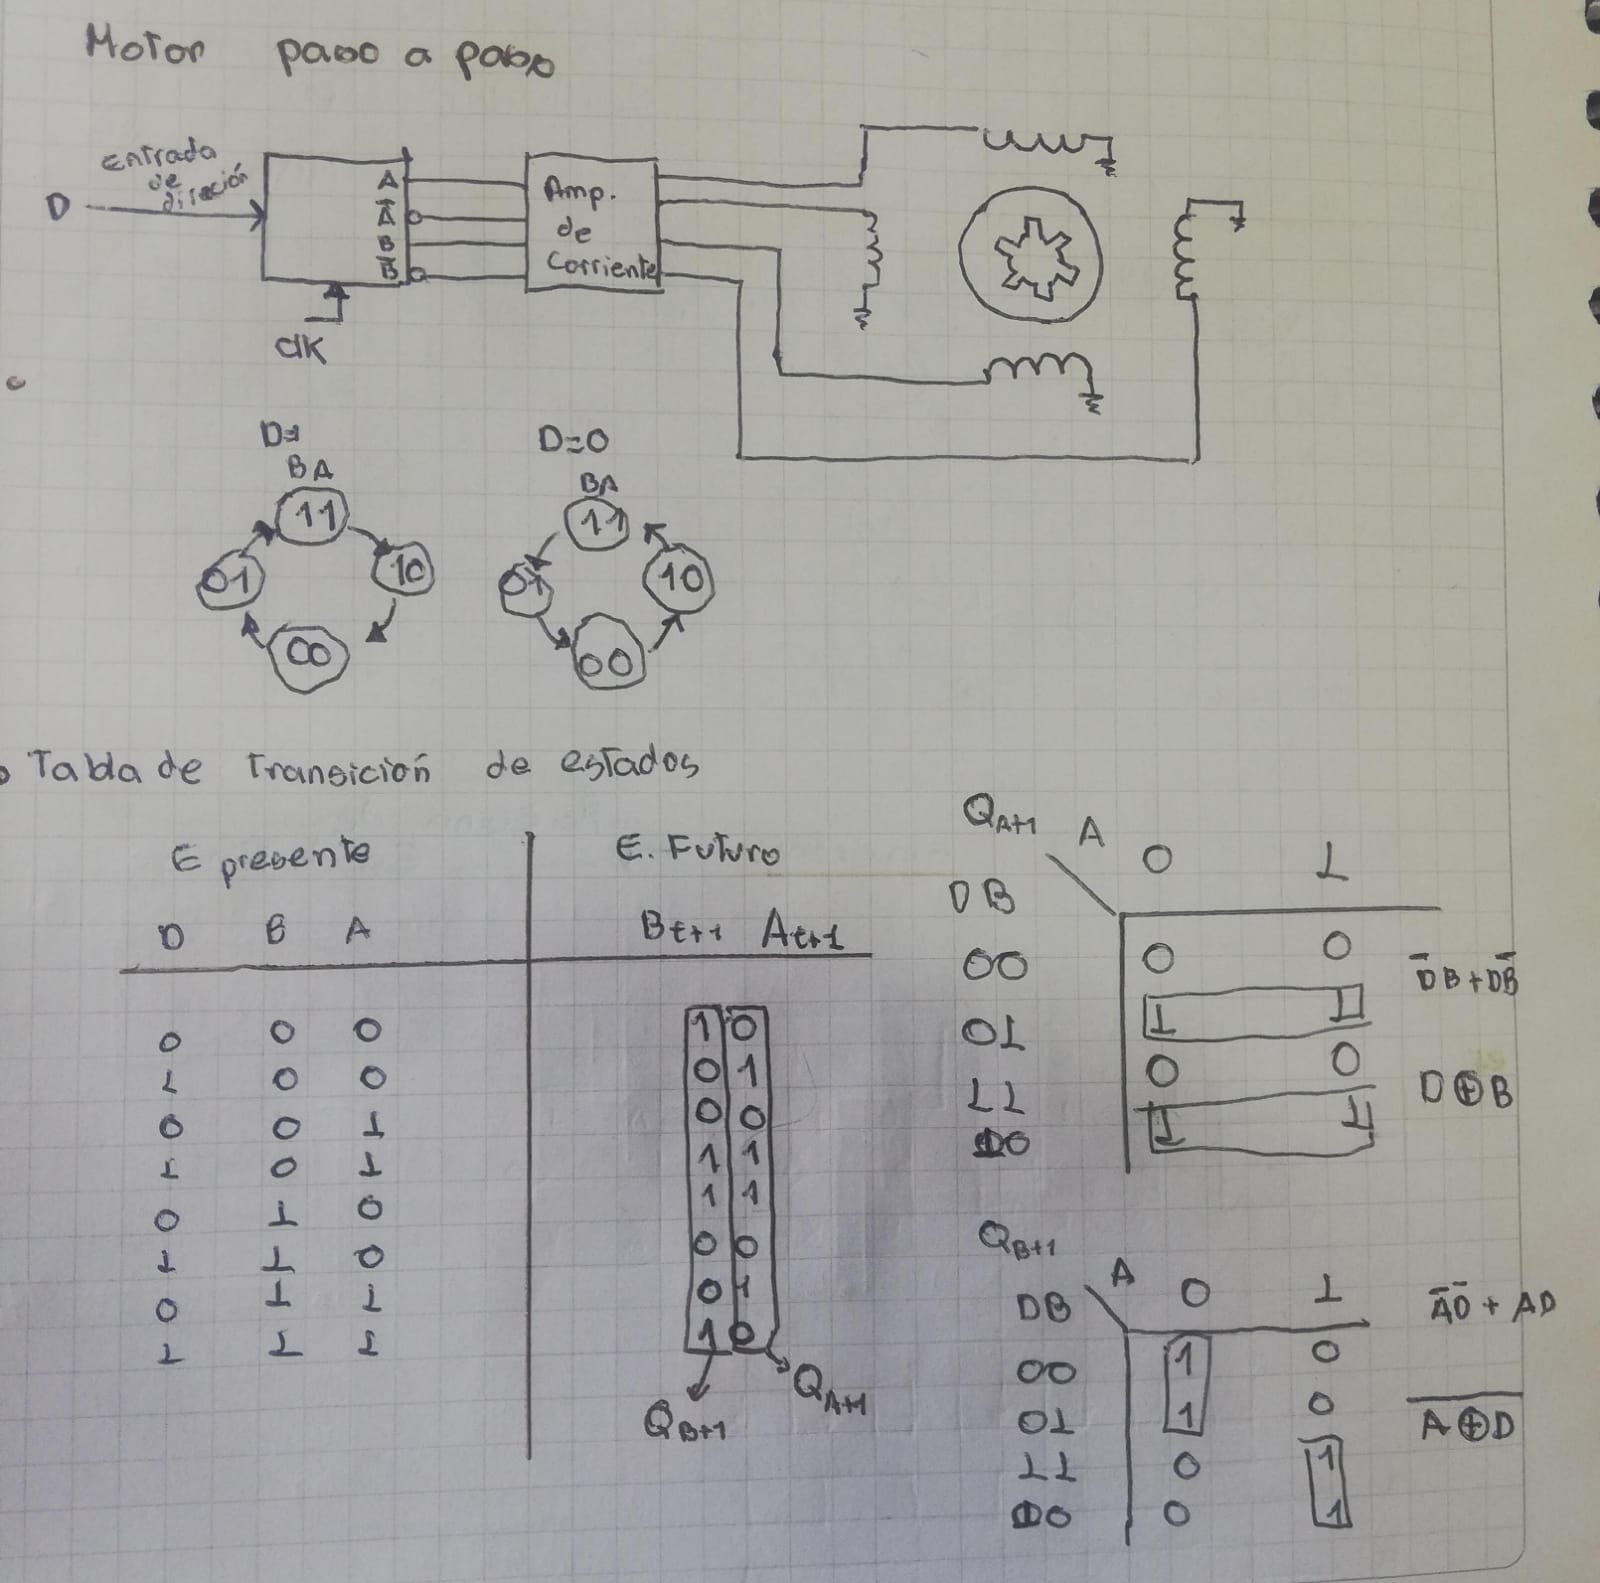 Motor paso a paso
Entrada
de
direción
D
A
Ā
B
B̄
Amp.
de
Corriente
clk
D=1
BA
11
01
10
00
D=0
BA
11
01
10
00
Tabla de Transición de estados
E presente
E. Futuro
D B A
Bt+1 At+1
0 0 0 1 0
1 0 0 0 1
0 0 1 0 0
1 0 1 1 1
0 1 0 1 1
1 1 0 0 0
0 1 1 0 1
1 1 1 1 0
QB+1
QA+1
QA+1
A 0 1
DB
00 0 0
01 1 1
11 0 0
10 1 1
D̄B + DB̄
D⊕B
QB+1
A 0 1
DB
00 1 0
01 1 0
11 0 1
10 0 1
ĀD̄ + AD
A̅⊕̅D̅